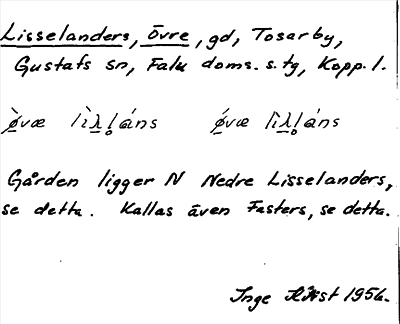 Lisselanders, Övre, gd, Tosarby,
Gustafs sn, Falu doms. s. tg, Kopp. l.
Gården ligger N Nedre Lisselanders,
se detta. Kallas även Fasters, se detta.
Inge 1956.